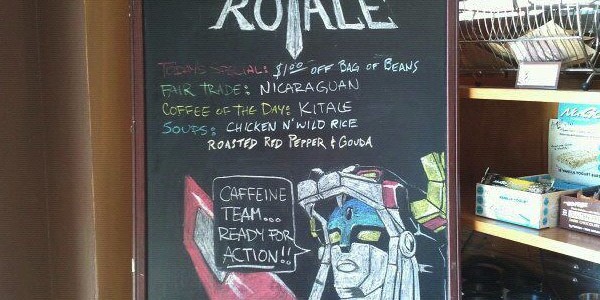 ROYALE
TODAY'S SPECIAL: $1.00 OFF BAG OF BEANS
FAIR TRADE: NICARAGUAN
COFFEE OF THE DAY: KITALE
SOUPS: CHICKEN N' WILD RICE
ROASTED RED PEPPER & GOUDA
CAFFEINE
TEAM...
READY FOR
ACTION!!